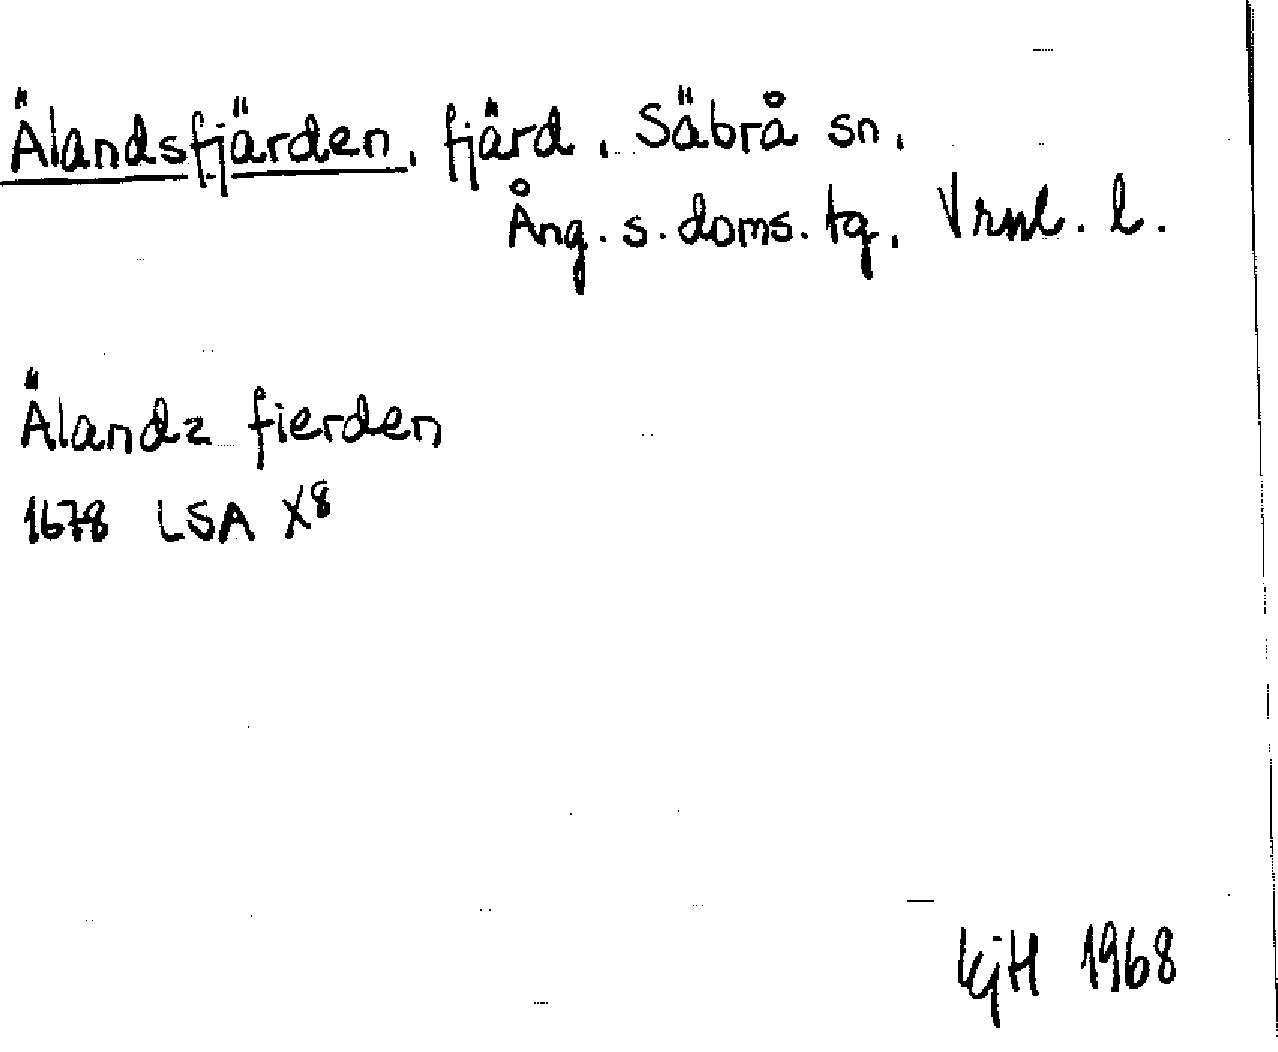 Älandsfjärden, fjärd, Säbrå sn,
Ång. s. doms. tg, Vrnl. l.
Älandz fierden
1678 LSA X8
KjH 1968